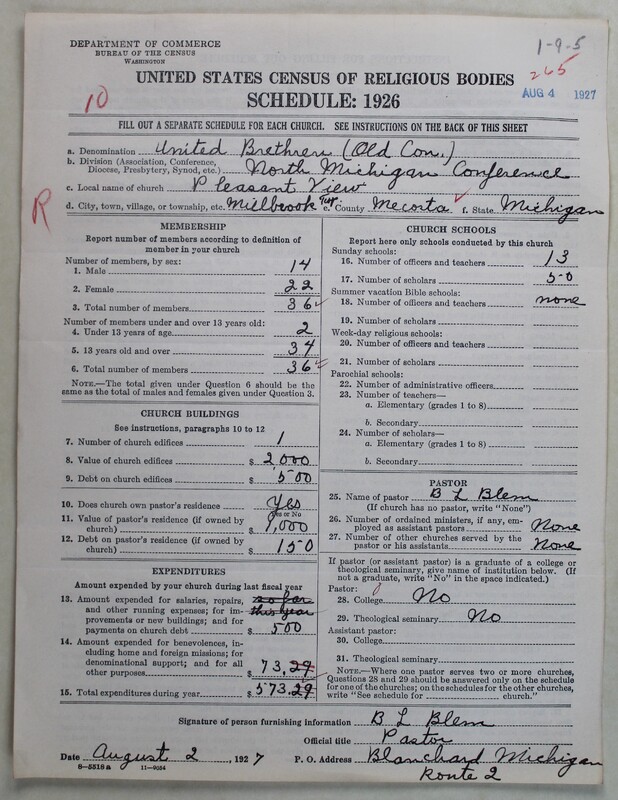 DEPARTMENT OF COMMERCE
BUREAU OF THE CENSUS
WASHINGTON
1-9-5
265
AUG 4 1927
10
UNITED STATES CENSUS OF RELIGIOUS BODIES
SCHEDULE: 1926
FILL OUT A SEPARATE SCHEDULE FOR EACH CHURCH. SEE INSTRUCTIONS ON THE BACK OF THIS SHEET
a. Denomination United Brethren (Old Con.)
b. Division (Association, Conference, Diocese, Presbytery, Synod, etc.) North Michigan Conference
c. Local name of church Pleasant View
R
d. City, town, village, or township, etc. Millbrook Twp. e. County Mecosta f. State Michigan
MEMBERSHIP
Report number of members according to definition of
member in your church
Number of members, by sex:
1. Male 14
2. Female 22
3. Total number of members 36
Number of members under and over 13 years old:
4. Under 13 years of age 2
5. 13 years old and over 34
6. Total number of members 36
NOTE.—The total given under Question 6 should be
same as the total of males and females given under Question 3.
CHURCH BUILDINGS
See instructions, paragraphs 10 to 12
7. Number of church edifices 1
8. Value of church edifices $ 2,000
9. Debt on church edifices $ 500
10. Does church own pastor's residence Yes
Yes or No
11. Value of pastor's residence (if owned by
church) $ 1,000
12. Debt on pastor's residence (if owned by
church) $ 150
EXPENDITURES
Amount expended by your church during last fiscal year
13. Amount expended for salaries, repairs, so far
and other running expenses; for im- this year
provements or new buildings; and for
payments on church debt $ 500
14. Amount expended for benevolences, in-
cluding home and foreign missions; for
denominational support; and for all
other purposes $ 73.29
15. Total expenditures during year $ 573.29
CHURCH SCHOOLS
Report here only schools conducted by this church
Sunday schools:
16. Number of officers and teachers 13
17. Number of scholars 50
Summer vacation Bible schools:
18. Number of officers and teachers none
19. Number of scholars
Week-day religious schools:
20. Number of officers and teachers
21. Number of scholars
Parochial schools:
22. Number of administrative officers
23. Number of teachers—
a. Elementary (grades 1 to 8)
b. Secondary
24. Number of scholars—
a. Elementary (grades 1 to 8)
b. Secondary
PASTOR
25. Name of pastor B L Blem
(If church has no pastor, write "None")
26. Number of ordained ministers, if any, em-
ployed as assistant pastors None
27. Number of other churches served by the
pastor or his assistants None
If pastor (or assistant pastor) is a graduate of a college or
theological seminary, give name of institution below. (If
not a graduate, write "No" in the space indicated.)
Pastor:
28. College No
29. Theological seminary No
Assistant pastor:
30. College
31. Theological seminary
NOTE.—Where one pastor serves two or more churches,
Questions 28 and 29 should be answered only on the schedule
for one of the churches; on the schedules for the other churches,
write "See schedule for church."
Signature of person furnishing information B L Blem
Official title Pastor
Date August 2, 1927 P. O. Address Blanchard Michigan
Route 2
8-5518 a 11-9034